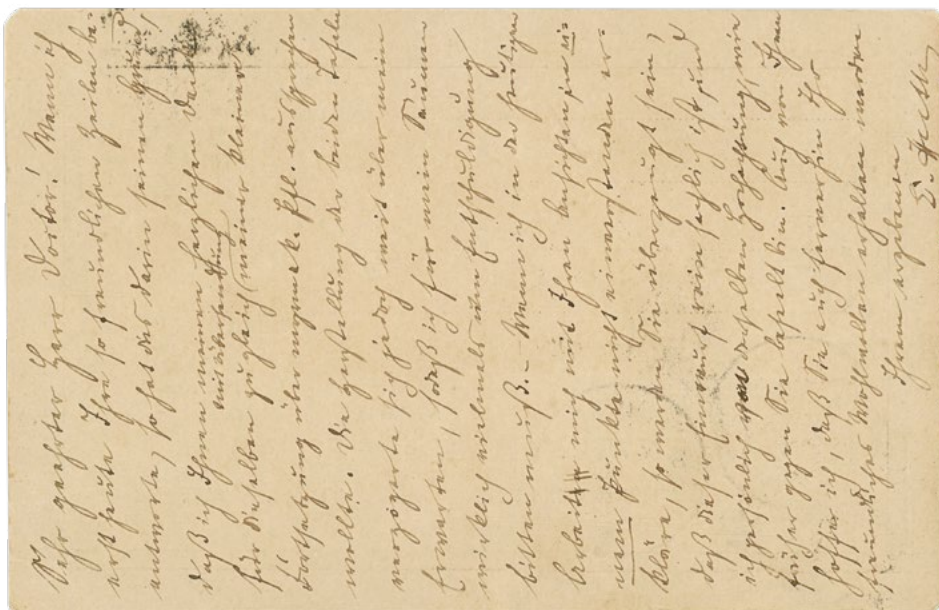 Sehr geehrter Herr Doctor! Wenn ich
erst heute Ihre so freundlichen Zeilen be-
antworte, so hat das darin seinen Grund,
daß ich Ihnen meinen herzlichen Dank
mit Übersendung
für dieselben zugleich meiner kleinen
Fortsetzung über myrmek. Pfl. aussprechen
wollte. Die Herstellung der beiden Tafeln
verzögerte sich jedoch weit über mein
Erwarten, sodaß ich für mein Säumen
wirklich vielmals um Entschuldigung
bitten muß. – Wenn ich in der heutigen
Arbeit mich mit Ihren Ansichten in ei-
nem Punkte nicht einverstanden er-
kläre, so werden Sie überzeugt sein,
daß dieser Einwurf rein sachlich ist, und
ich persönlich von derselben Hochachtung wie
früher gegen Sie beseelt bin. Auch von Ihnen
hoffe ich, daß Sie auch fernerhin Ihr
freundliches Wohlwollen erhalten werden
Ihrem ergebenen
E. Huth